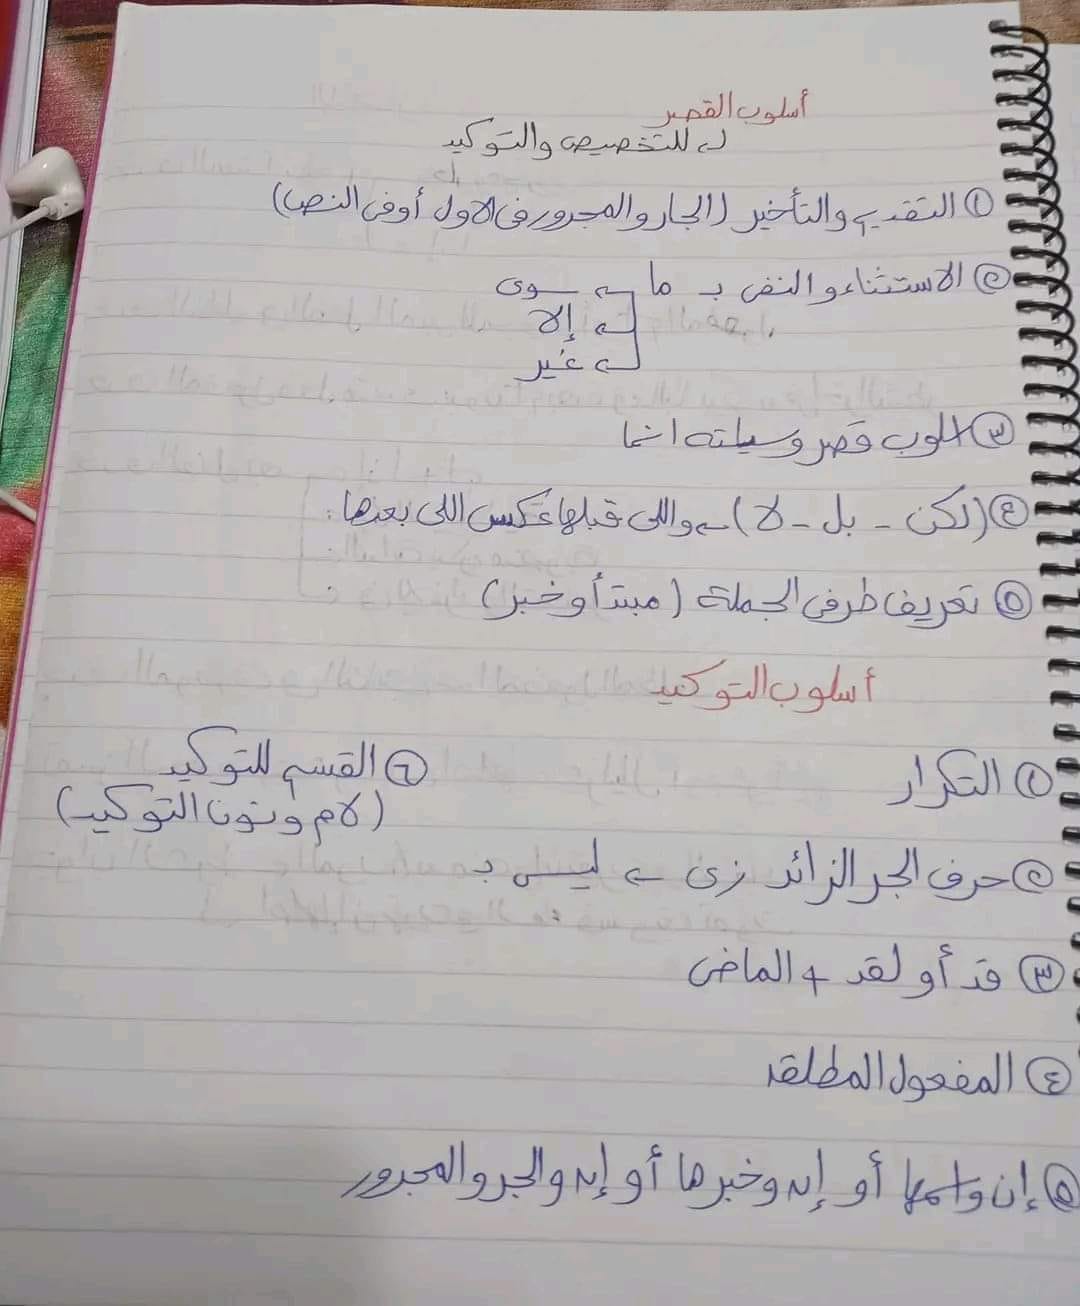 أسلوب القصر
للتخصيص والتوكيد
① التقديم والتأخير (الجار والمجرور فى الاول أو فى النص)
② الاستثناء والنفى بـ ما سوى
إلا
غير
③ اسلوب قصر وسيلته انما
④ (لكن - بل - لا) واللى قبلها عكس اللى بعدها.
⑤ تعريف طرفى الجملة (مبتدأ وخبر)
أسلوب التوكيد
① التكرار
② حرف الجر الزائد زى ليس بـ
③ قد أو لقد + الماضى
④ المفعول المطلق
⑤ إن واسمها أو إن وخبرها أو إن والجر والمجرور
⑥ القسم للتوكيد
(لام ونون التوكيد)